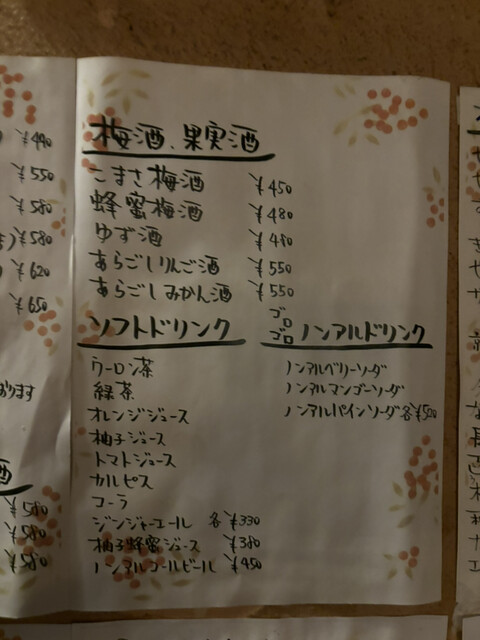 梅酒、果実酒
こまさ梅酒 ¥450
蜂蜜梅酒 ¥480
ゆず酒 ¥480
あらごしりんご酒 ¥550
あらごしみかん酒 ¥550
ソフトドリンク
ウーロン茶
緑茶
オレンジジュース
柚子ジュース
トマトジュース
カルピス
コーラ
ジンジャーエール 各¥330
柚子蜂蜜ジュース ¥380
ノンアルコールビール ¥450
ゴロゴロ ノンアルドリンク
ノンアルベリーソーダ
ノンアルマンゴーソーダ
ノンアルパインソーダ 各¥500
¥490
¥550
¥580
¥580
¥620
¥650
おります
酒
¥580
¥580
¥580